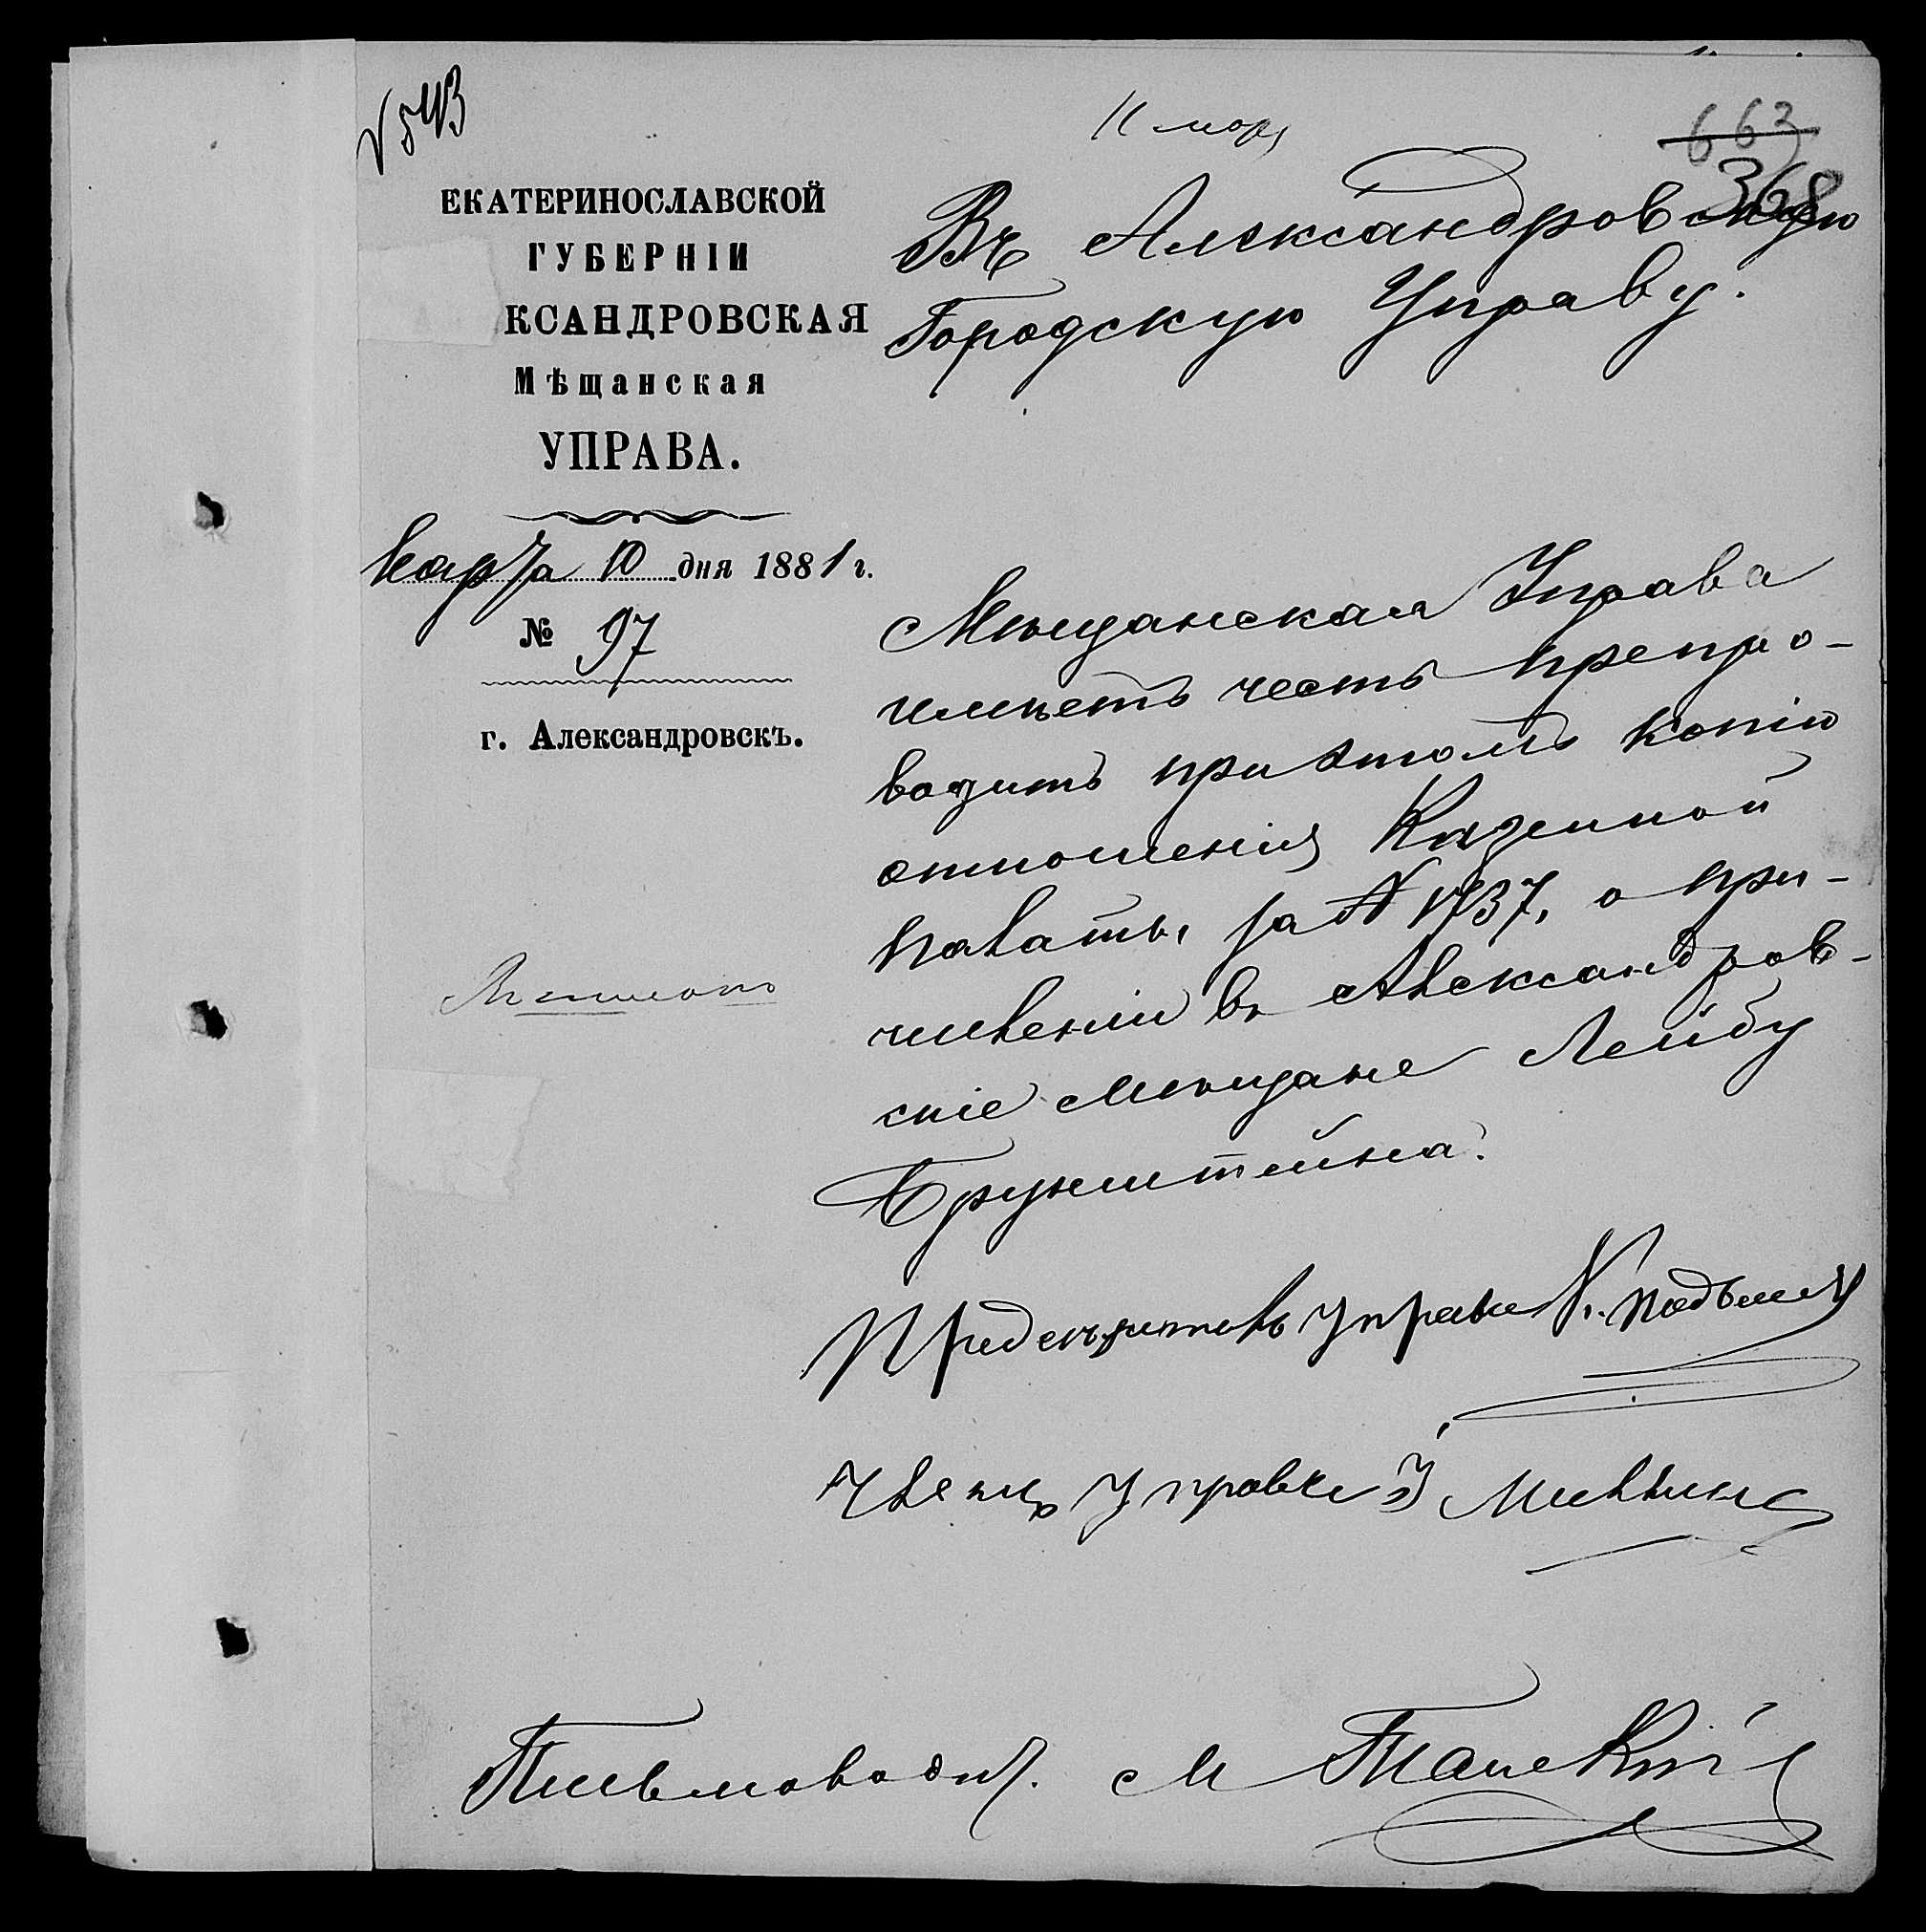 № 543
11 мар
663
368
ЕКАТЕРИНОСЛАВСКОЙ
ГУБЕРНІИ
КСАНДРОВСКАЯ
Мѣщанская
УПРАВА.
Марта 10 дня 1881 г.
№ 97
г. Александровскъ.
Въ Александровскую
Городскую Управу.
Мѣщанская Управа
имѣетъ честь препро-
водить при этомъ копію
отношенія Казенной
Палаты, за № 1737, о при-
численіи въ Александров-
скіе мѣщане Лейбу
Брунштейна.
Предсѣдатель Управы
Членъ Управы
Письмоводит. М